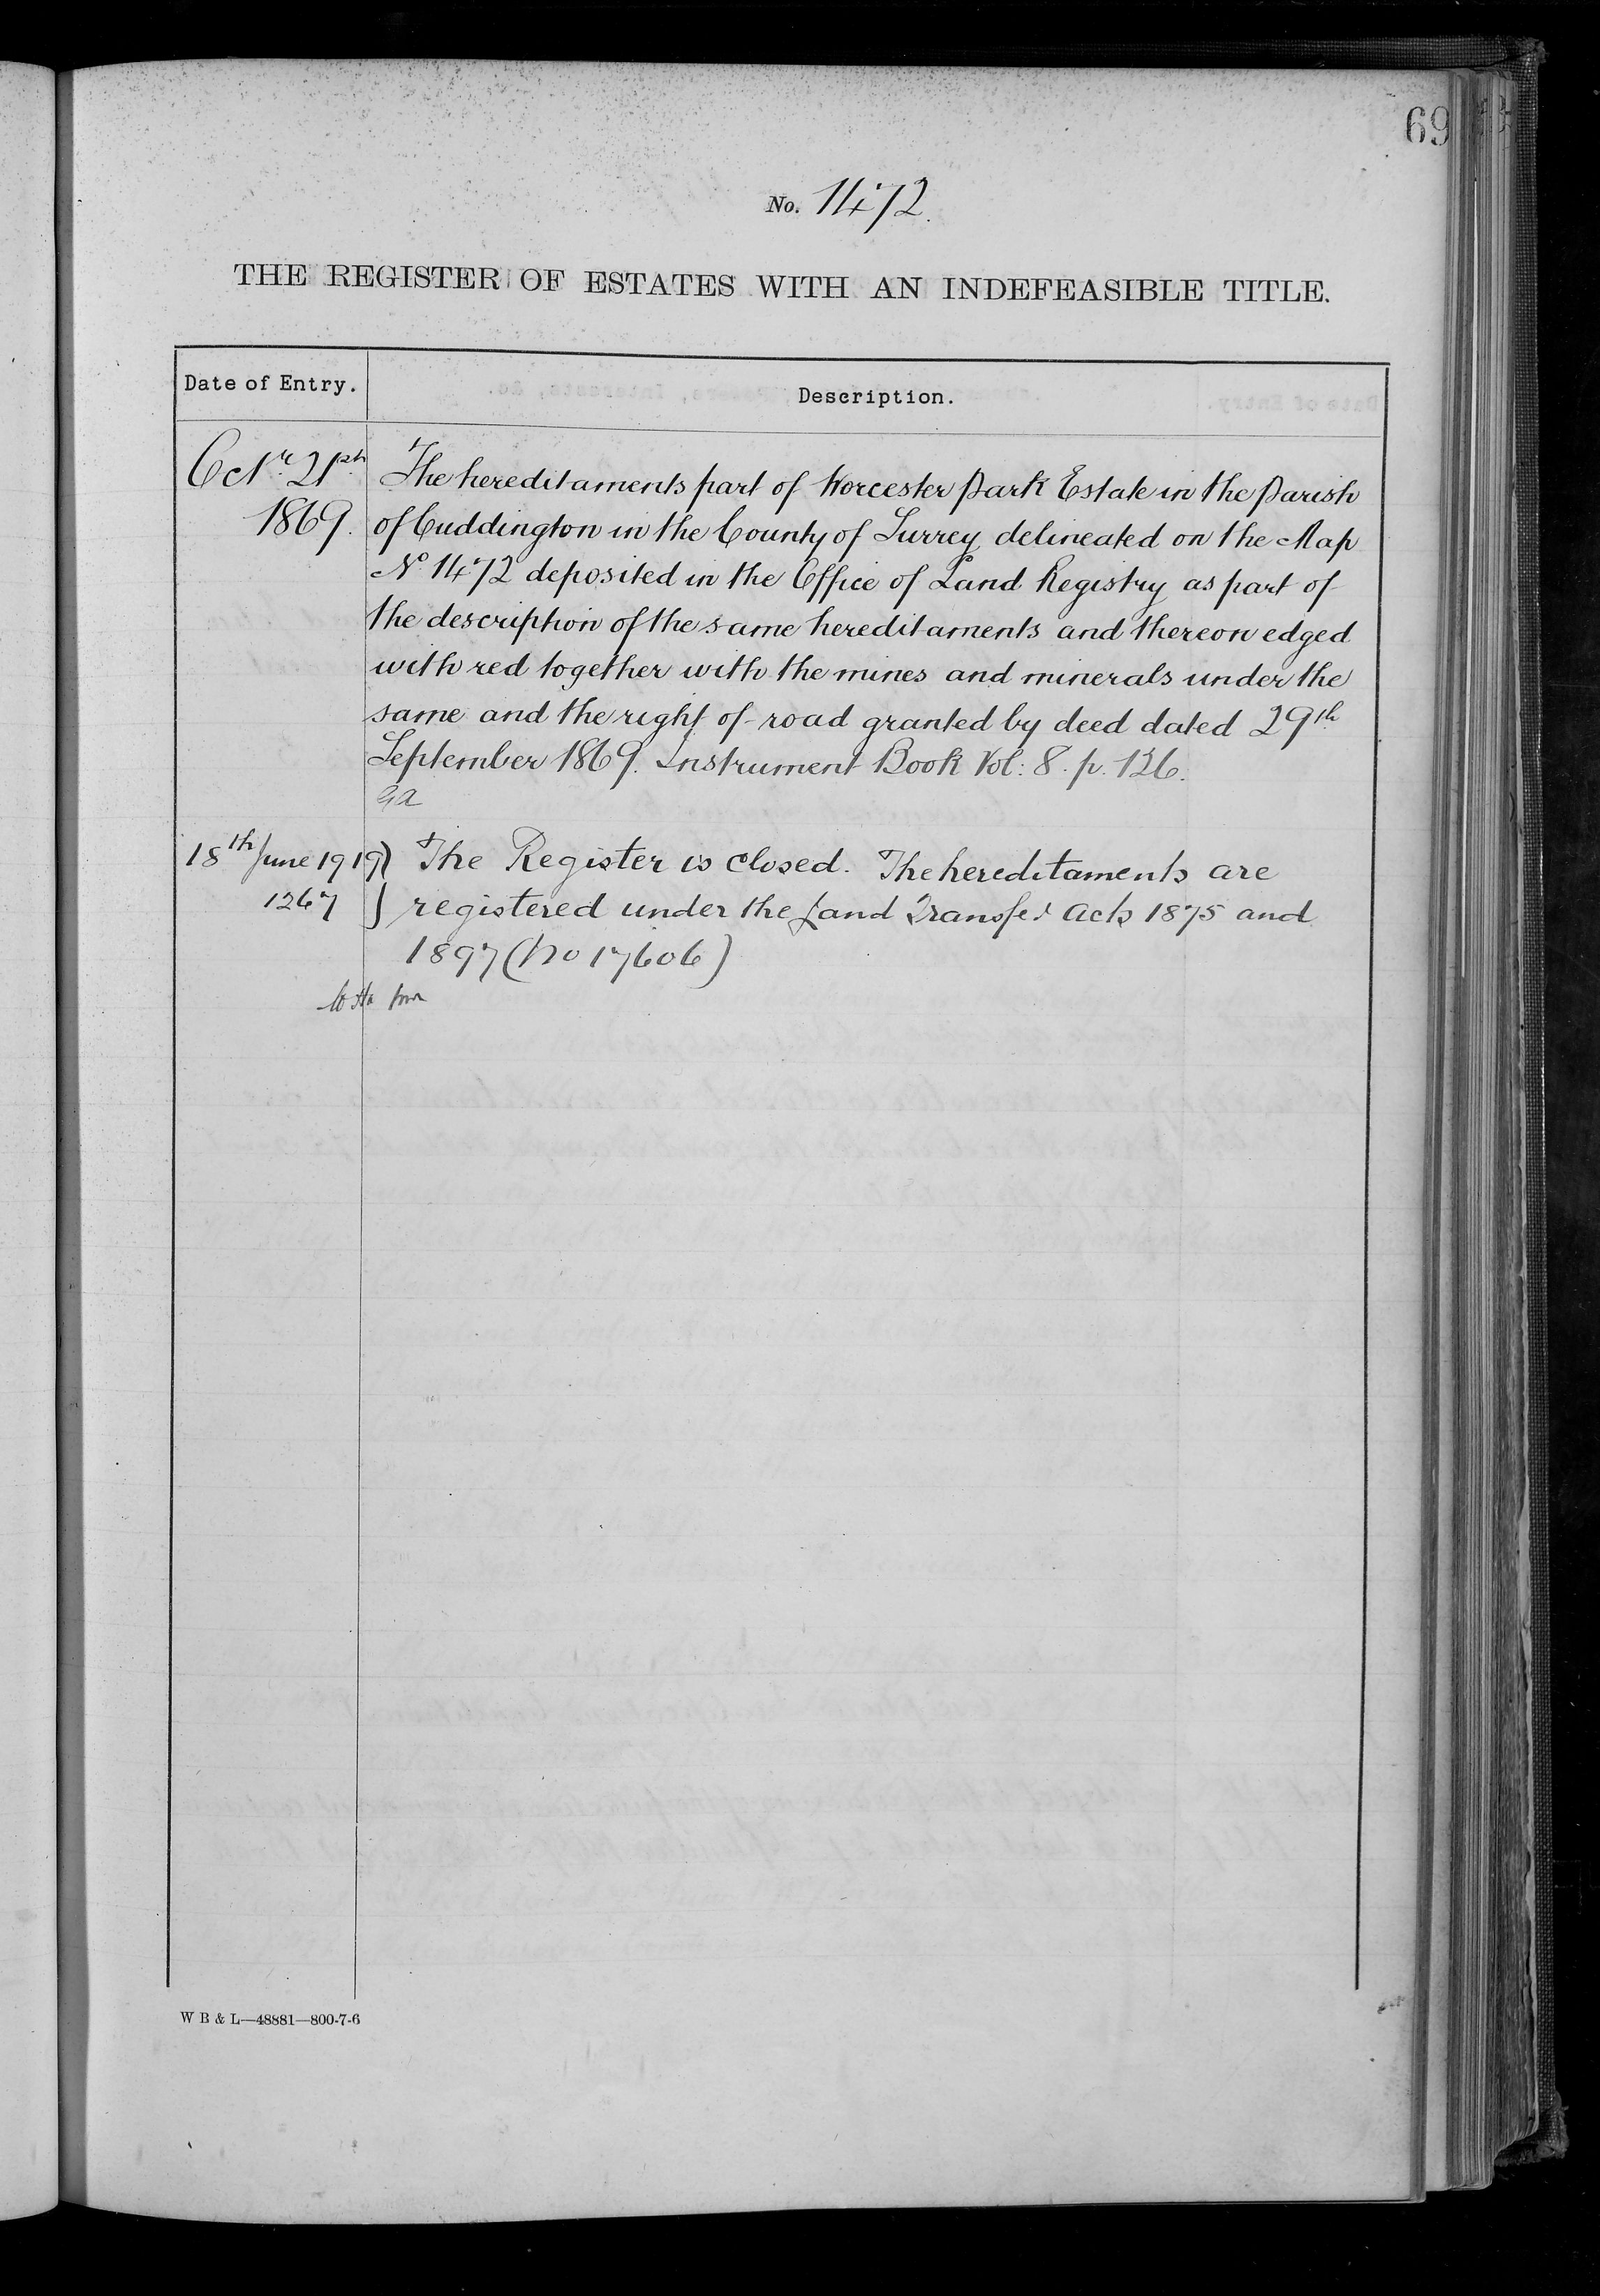 69
No. 1472.
THE REGISTER OF ESTATES WITH AN INDEFEASIBLE TITLE.
Date of Entry. Description.
Octr. 21st The hereditaments part of Worcester Park Estate in the Parish
1869. of Cuddington in the County of Surrey delineated on the Map
No 1472 deposited in the Office of Land Registry as part of
the description of the same hereditaments and thereon edged
with red together with the mines and minerals under the
same and the right of road granted by deed dated 29th
September 1869. Instrument Book Vol: 8. p. 136.
18th June 1919 } The Register is closed. The hereditaments are
1267 } registered under the Land Transfer Acts 1875 and
1897 (No 17606)
W B & L—48881—800-7-6